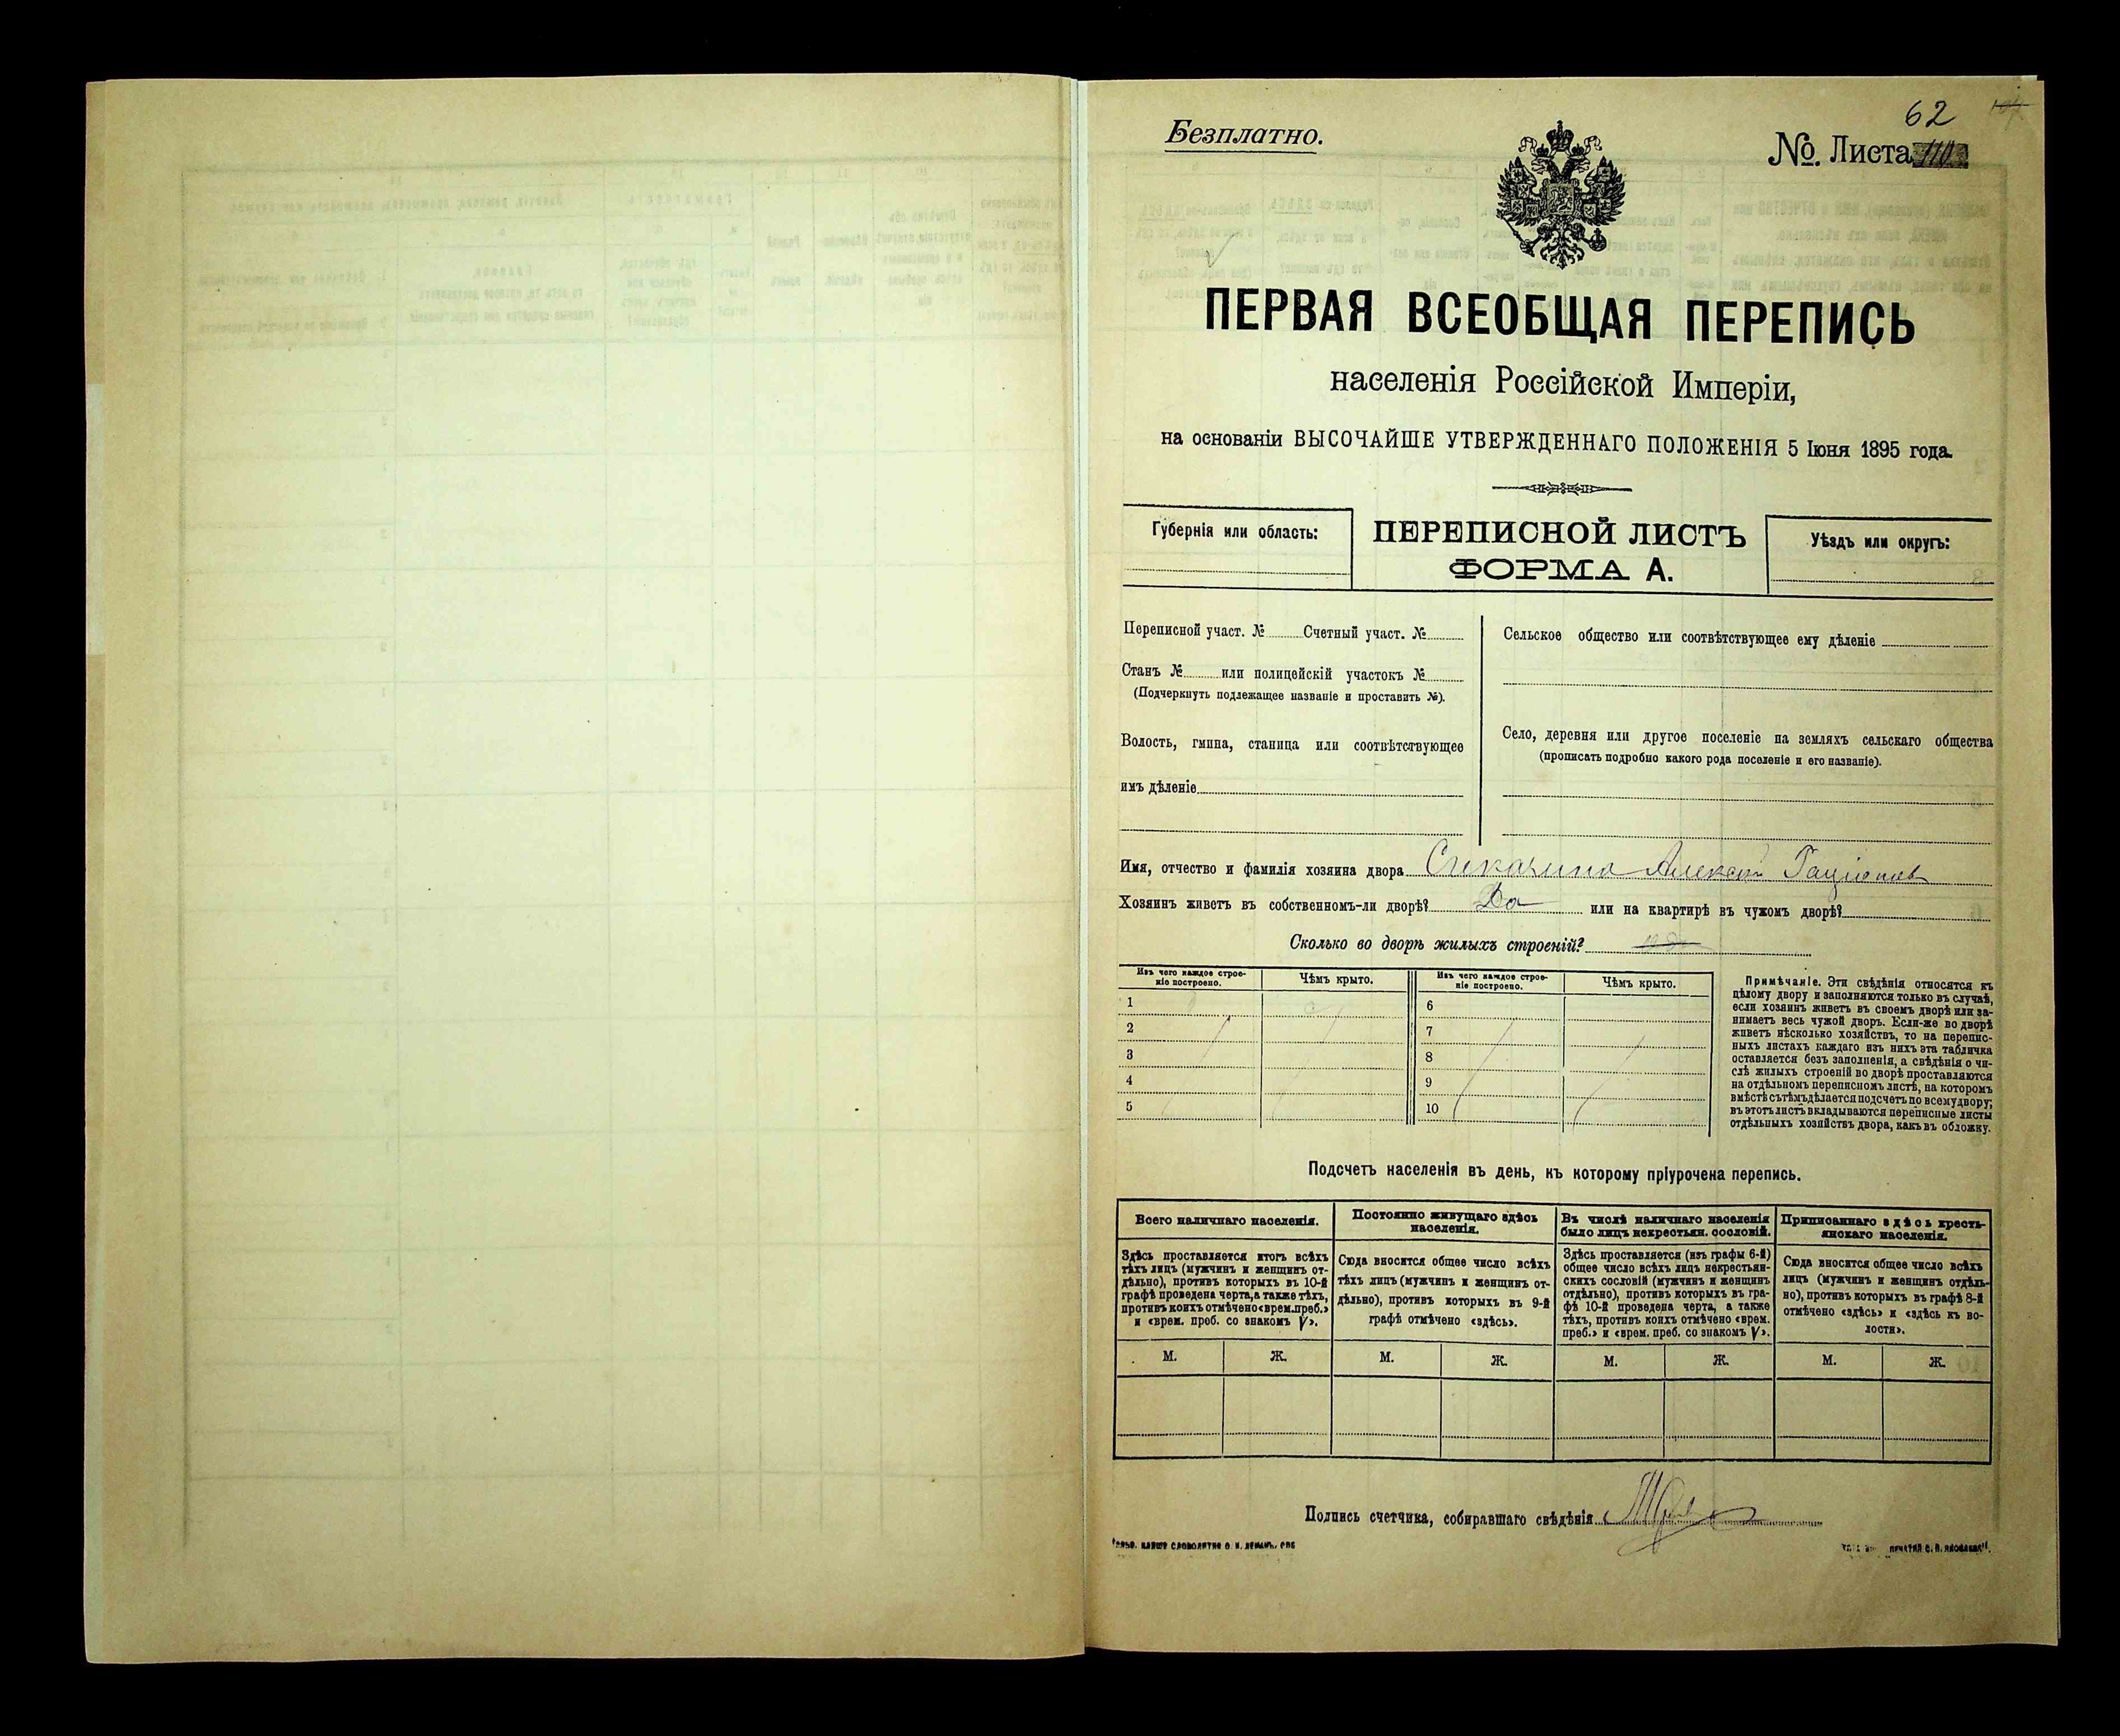 62
Безплатно.
№. Листа 110
ПЕРВАЯ ВСЕОБЩАЯ ПЕРЕПИСЬ
населенія Россійской Имперіи,
на основаніи ВЫСОЧАЙШЕ УТВЕРЖДЕННАГО ПОЛОЖЕНІЯ 5 Іюня 1895 года.
Губернія или область:
ПЕРЕПИСНОЙ ЛИСТЪ
ФОРМА А.
Уѣздъ или округъ:
Переписной участ. № Счетный участ. №
Станъ № или полицейскій участокъ №
(Подчеркнуть подлежащее названіе и проставить №).
Волость, гмина, станица или соотвѣтствующее
имъ дѣленіе
Сельское общество или соотвѣтствующее ему дѣленіе
Село, деревня или другое поселеніе на земляхъ сельскаго общества
(прописать подробно какого рода поселеніе и его названіе).
Имя, отчество и фамилія хозяина двора Алексѣй
Хозяинъ живетъ въ собственномъ-ли дворѣ? Да или на квартирѣ въ чужомъ дворѣ?
Сколько во дворѣ жилыхъ строеній?
Изъ чего каждое строе-
ніе построено.
Чѣмъ крыто.
Изъ чего каждое строе-
ніе построено.
Чѣмъ крыто.
1
2
3
4
5
6
7
8
9
10
Примѣчаніе. Эти свѣдѣнія относятся къ
цѣлому двору и заполняются только въ случаѣ,
если хозяинъ живетъ въ своемъ дворѣ или за-
нимаетъ весь чужой дворъ. Если-же во дворѣ
живетъ нѣсколько хозяйствъ, то на перепис-
ныхъ листахъ каждаго изъ нихъ эта табличка
оставляется безъ заполненія, а свѣдѣнія о чи-
слѣ жилыхъ строеній во дворѣ проставляются
на отдѣльномъ переписномъ листѣ, на которомъ
вмѣстѣ съ тѣмъ дѣлается подсчетъ по всему двору;
въ этотъ листъ вкладываются переписные листы
отдѣльныхъ хозяйствъ двора, какъ въ обложку.
Подсчетъ населенія въ день, къ которому пріурочена перепись.
Всего наличнаго населенія.
Здѣсь проставляется итогъ всѣхъ
тѣхъ лицъ (мужчинъ и женщинъ от-
дѣльно), противъ которыхъ въ 10-й
графѣ проведена черта, а также тѣхъ,
противъ коихъ отмѣчено «врем. преб.»
и «врем. преб. со знакомъ V».
Постоянно живущаго здѣсь
населенія.
Сюда вносится общее число всѣхъ
тѣхъ лицъ (мужчинъ и женщинъ от-
дѣльно), противъ которыхъ въ 9-й
графѣ отмѣчено «здѣсь».
Въ числѣ наличнаго населенія
было лицъ некрестьян. сословій.
Здѣсь проставляется (изъ графы 6-й)
общее число всѣхъ лицъ некрестьян-
скихъ сословій (мужчинъ и женщинъ
отдѣльно), противъ которыхъ въ гра-
фѣ 10-й проведена черта, а также
тѣхъ, противъ коихъ отмѣчено «врем.
преб.» и «врем. преб. со знакомъ V».
Приписаннаго здѣсь кресть-
янскаго населенія.
Сюда вносится общее число всѣхъ
лицъ (мужчинъ и женщинъ отдѣль-
но), противъ которыхъ въ графѣ 8-й
отмѣчено «здѣсь» и «здѣсь къ во-
лости».
М. Ж. М. Ж. М. Ж. М. Ж.
Подпись счетчика, собиравшаго свѣдѣнія